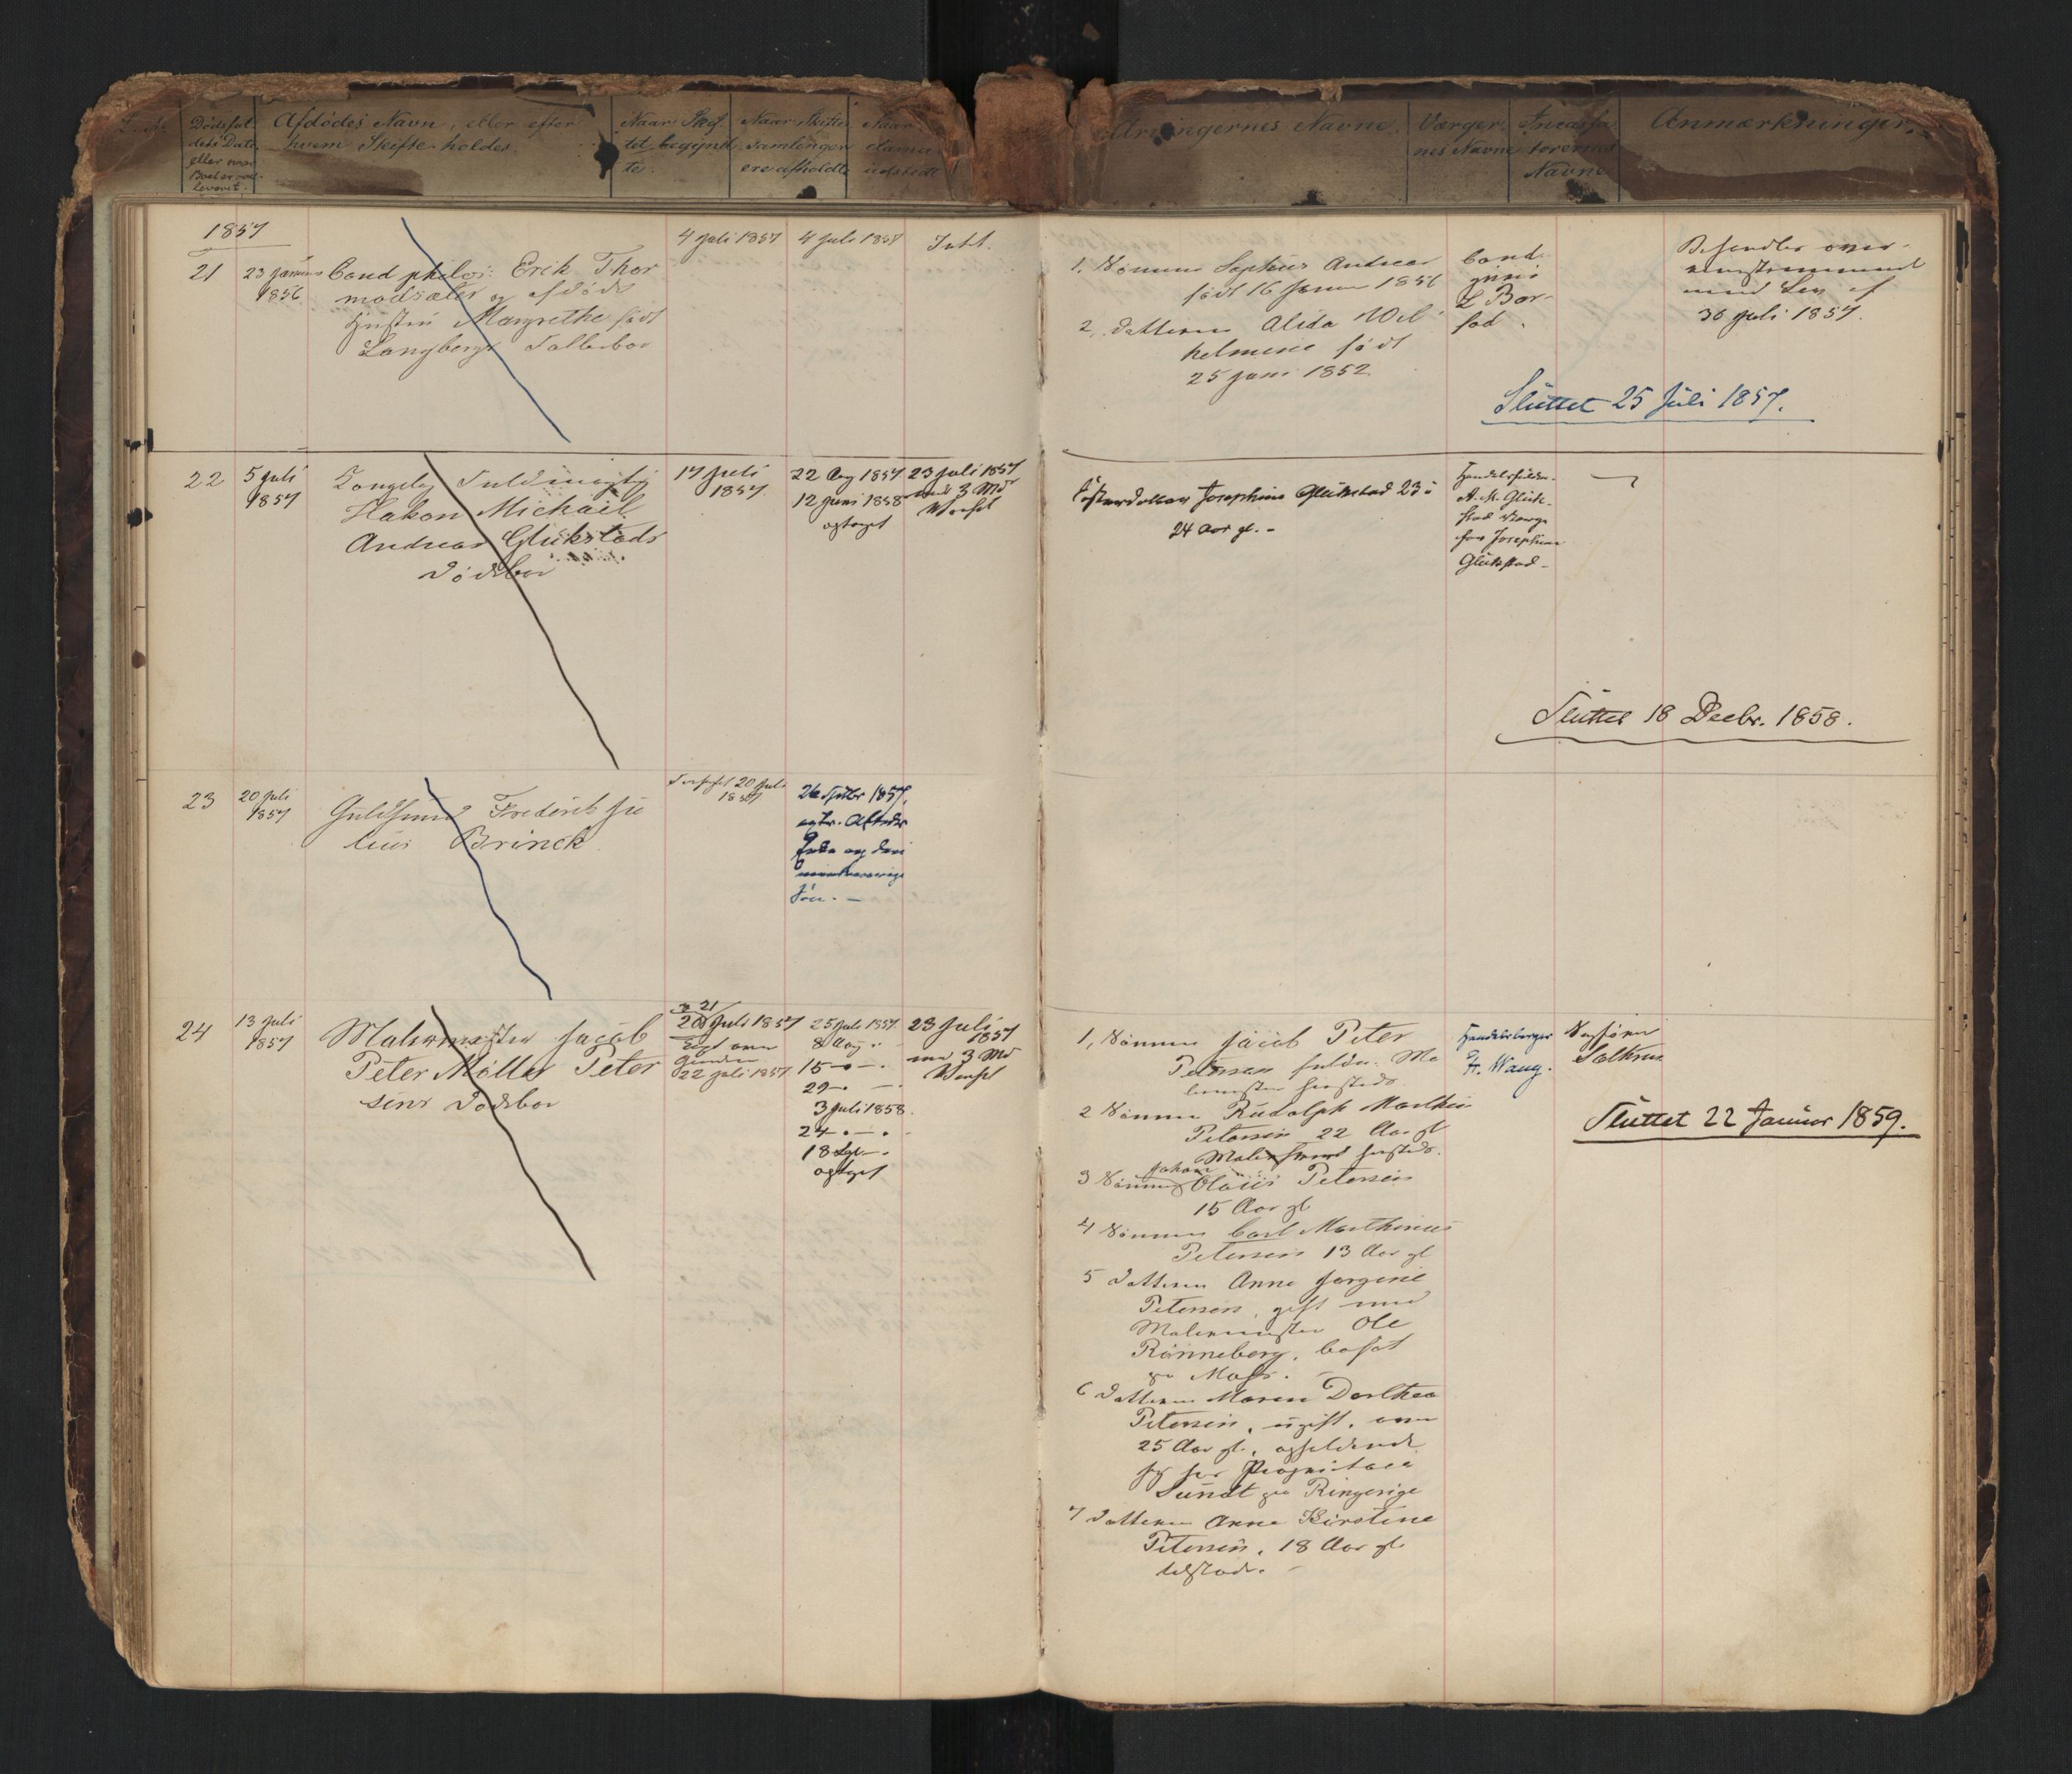 Dødsfal-
dets Dato
eller naar
Boet er ind-
leveret.
Afdødes Navn, eller efter
hvem Skifte holdes.
Naar Skif-
tet begynd-
te.
Naar Skifte
samlingen
ere afholdte
Naar
udstedt
Arvingernes Navne.
Værger-
nes Navne
Incassa-
torernes
Navne
Anmærkninger.
1857
21
23 Januar
1856
Cand philos: Erik Thor
modsæter og afdøde
Hustru Margrethe født
Langbergs Fallesboe
4 Juli 1857
4 Juli 1857
Intet.
1, Sønnen Sophus Andreas
født 16 Januar 1856
2, Datteren Alida Wil
helmine født
25 Juni 1852
Cand
juris
L Bor-
fod.
Behandles over-
eensstemmende
med Lov af
30 Juli 1857.
Sluttet 25 Juli 1857.
22
5 Juli
1857
Kongelig Fuldmægtig
Hakon Michael
Andreas Glükstads
Dødsboe
17 Juli
1857
22 Aug 1857
12 Juni 1858
optaget
23 Juli 1857
med 3 Mdr
Varsel
Søsterdatter Josephine Glükstad 23 à
24 Aar gl. -
A. M. Glük-
stad Værge
for Josephine
Glükstad -
Sluttet 18 Decbr. 1858.
23
20 Juli
1857
Guldsmed Frederik Ju
lius Brinck
20 Juli
1857
26 Septbr 1857,
Enke og den
mindreaarige
Søn. -
24
13 Juli
1857
Malermester Jacob
Peter Møller Peter
sens Dødsboe
21
20 Juli 1857
22 Juli 1857
25 Juli 1857
8 Aug "
15 - " - .
29 - . -
3 Juli 1858.
24 - . - .
18 Spt - .
optaget
23 Juli
1857
med 3 Md
Varsel
1, Sønnen Jacob Peter
Petersen fuldm. Ma
lermester hersteds.
2 Sønnen Rudolph Marthin
Petersen 22 Aar gl
Malersvend hersteds.
Johan
3 Sønnen Olaus Petersen
15 Aar gl
4 Sønnen Carl Marthinus
Petersen 13 Aar gl
5 Datteren Anne Jørgine
Petersen, gift med
Malermester Ole
Rønneberg, bosat
paa Moss. -
6 Datteren Maren Dorthea
Petersen, ugift, over
25 Aar gl., opholdende
sig hos Proprietair
Sundt paa Ringerige
7 Datteren Anne Kirstine
Petersen, 18 Aar gl.
tilstede. -
Handelsborger
H. Waug.
Sluttet 22 Januar 1859.